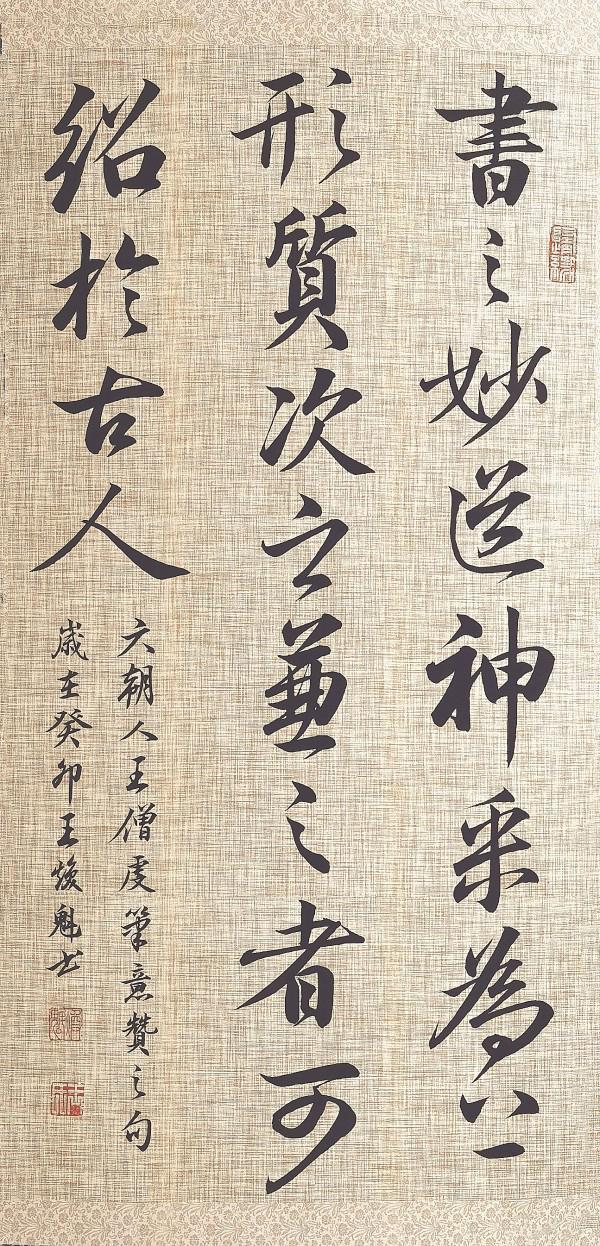 書之妙道神采為上
形質次之兼之者可
紹於古人
六朝人王僧虔筆意贊之句
歲在癸卯王煥魁书